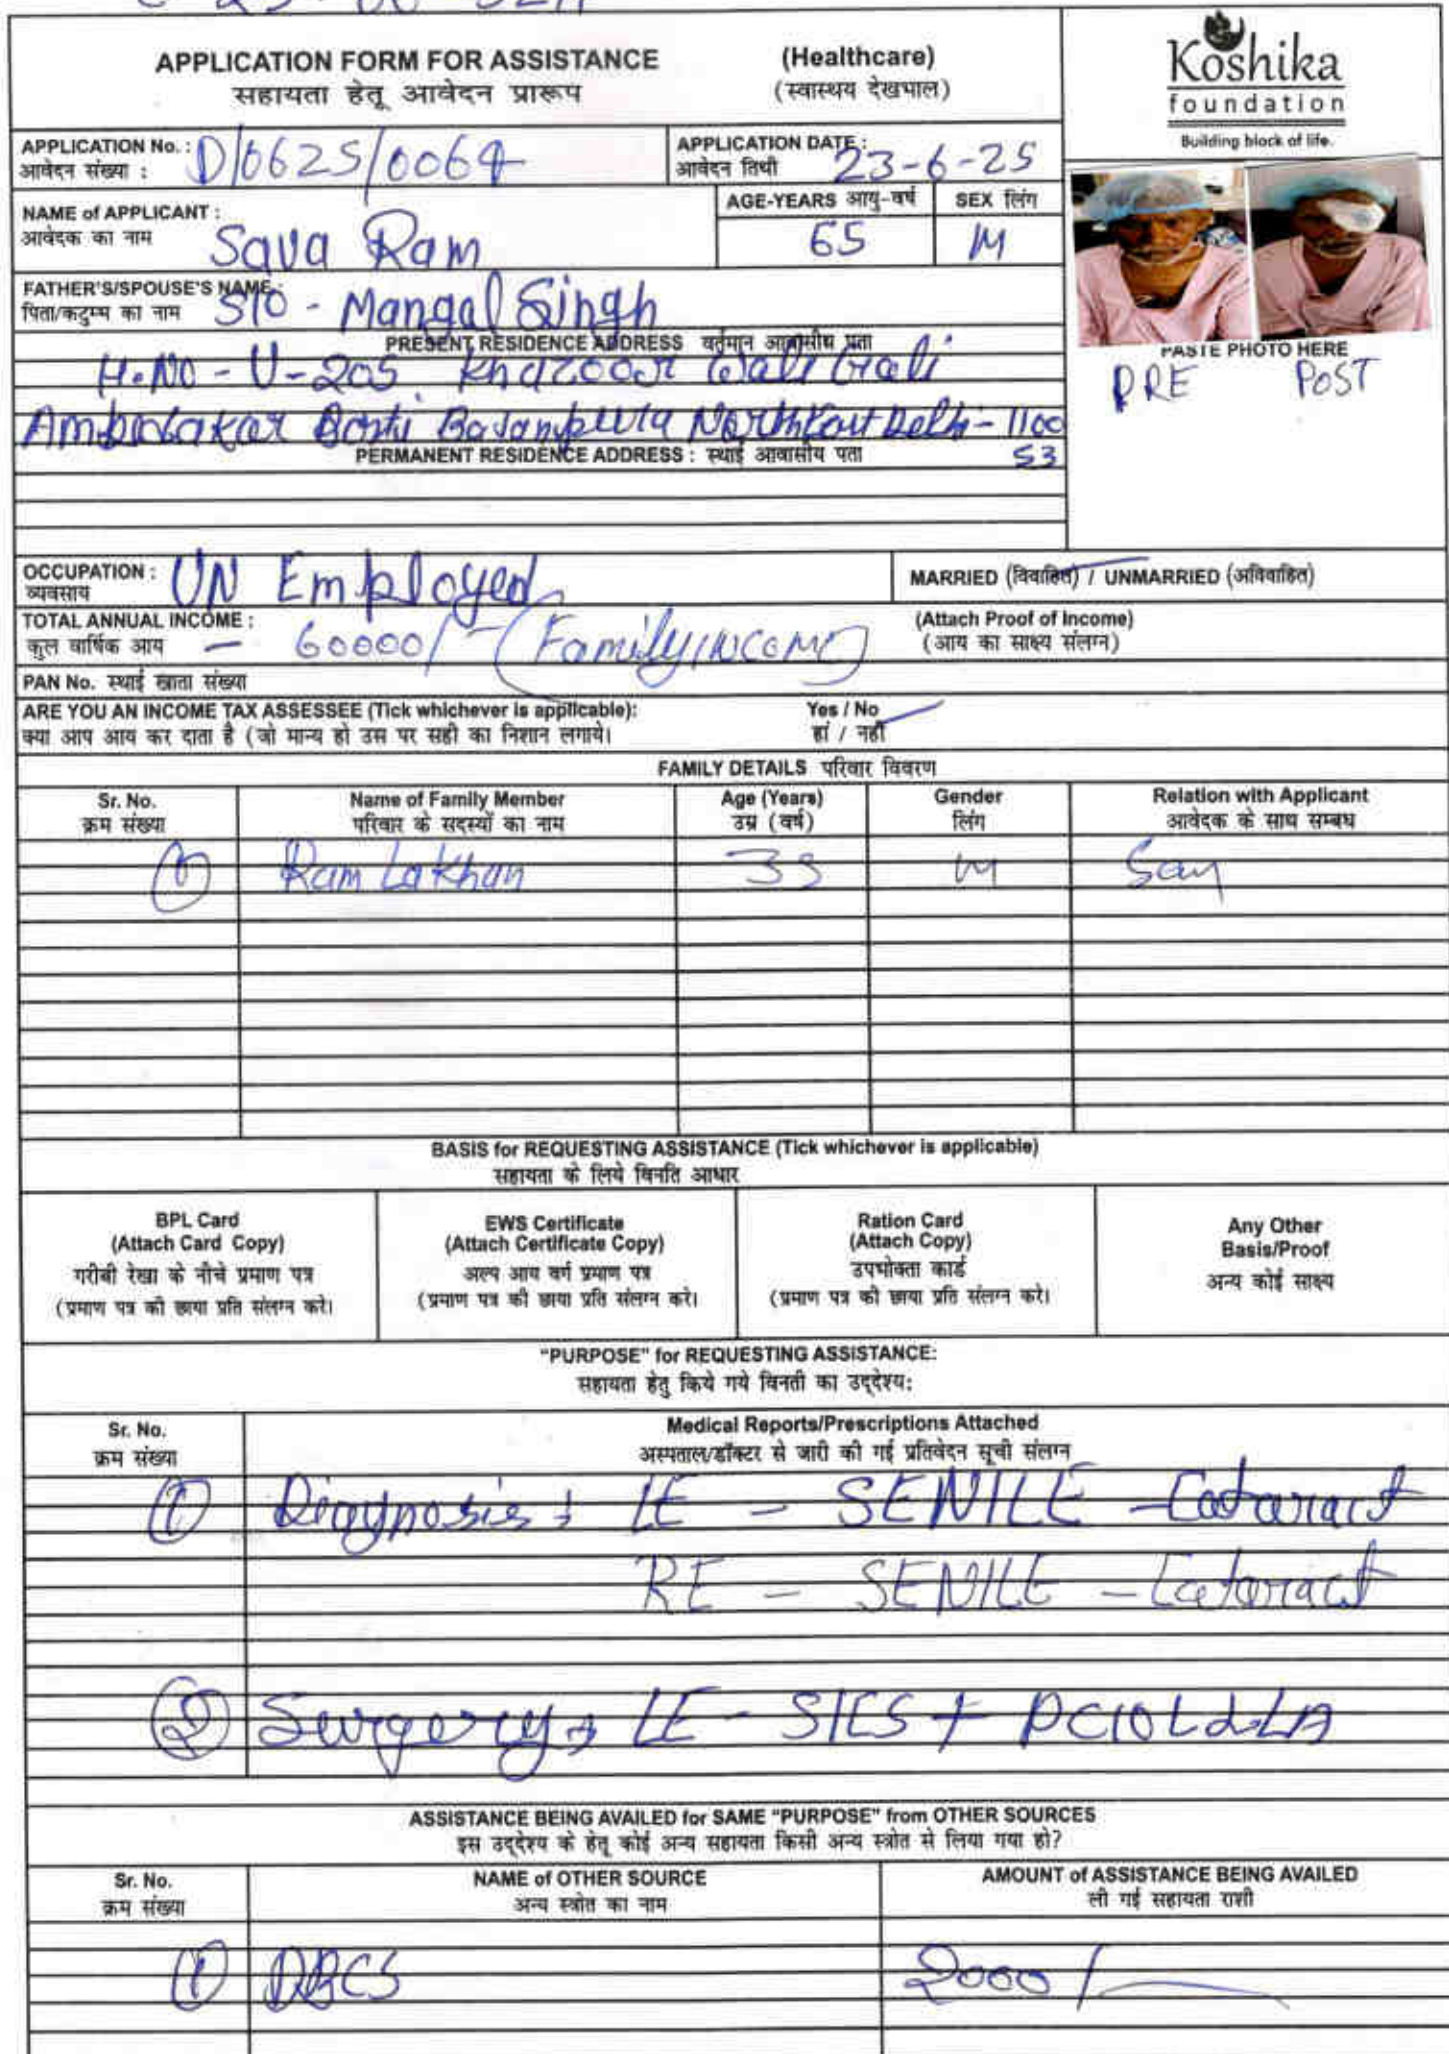 APPLICATION FORM FOR ASSISTANCE (Healthcare)
सहायता हेतू आवेदन प्रारूप (स्वास्थय देखभाल)
Koshika
foundation
Building block of life.
APPLICATION No. : D/0625/0064
आवेदन संख्या :
APPLICATION DATE : 23-6-25
आवेदन तिथी
NAME of APPLICANT : Sava Ram
आवेदक का नाम
AGE-YEARS आयु-वर्ष SEX लिंग
65 M
FATHER'S/SPOUSE'S NAME : S/O - Mangal Singh
पिता/कटुम्ब का नाम
PRESENT RESIDENCE ADDRESS वर्तमान आवासीय पता
H.NO - U-205 Khazoor Wali Gali
Ambedakar Basti North East Delhi - 1100
53
PERMANENT RESIDENCE ADDRESS : स्थाई आवासीय पता
PASTE PHOTO HERE
PRE POST
OCCUPATION : UN Employed
व्यवसाय
MARRIED (विवाहित) / UNMARRIED (अविवाहित)
TOTAL ANNUAL INCOME : 60000/- (Family income)
कुल वार्षिक आय
(Attach Proof of Income)
(आय का साक्ष्य संलग्न)
PAN No. स्थाई खाता संख्या
ARE YOU AN INCOME TAX ASSESSEE (Tick whichever is applicable): Yes / No
क्या आप आय कर दाता है (जो मान्य हो उस पर सही का निशान लगाये। हां / नहीं
FAMILY DETAILS परिवार विवरण
Sr. No. Name of Family Member Age (Years) Gender Relation with Applicant
क्रम संख्या परिवार के सदस्यों का नाम उम्र (वर्ष) लिंग आवेदक के साथ सम्बध
1 Ram Lakhan M
BASIS for REQUESTING ASSISTANCE (Tick whichever is applicable)
सहायता के लिये विनति आधार
BPL Card
(Attach Card Copy)
गरीबी रेखा के नीचे प्रमाण पत्र
(प्रमाण पत्र की छाया प्रति संलग्न करे।
EWS Certificate
(Attach Certificate Copy)
अल्प आय वर्ग प्रमाण पत्र
(प्रमाण पत्र की छाया प्रति संलग्न करे।
Ration Card
(Attach Copy)
उपभोक्ता कार्ड
(प्रमाण पत्र की छाया प्रति संलग्न करे।
Any Other
Basis/Proof
अन्य कोई साक्ष्य
"PURPOSE" for REQUESTING ASSISTANCE:
सहायता हेतु किये गये विनती का उद्देश्य:
Sr. No. Medical Reports/Prescriptions Attached
क्रम संख्या अस्पताल/डॉक्टर से जारी की गई प्रतिवेदन सूची संलग्न
1 Diagnosis: LE - SENILE - Cataract
RE - SENILE - Cataract
2 Surgery LE - SICS + PCIOL
ASSISTANCE BEING AVAILED for SAME "PURPOSE" from OTHER SOURCES
इस उद्देश्य के हेतू कोई अन्य सहायता किसी अन्य स्त्रोत से लिया गया हो?
Sr. No. NAME of OTHER SOURCE AMOUNT of ASSISTANCE BEING AVAILED
क्रम संख्या अन्य स्त्रोत का नाम ली गई सहायता राशी
1 DBCS 2000/-